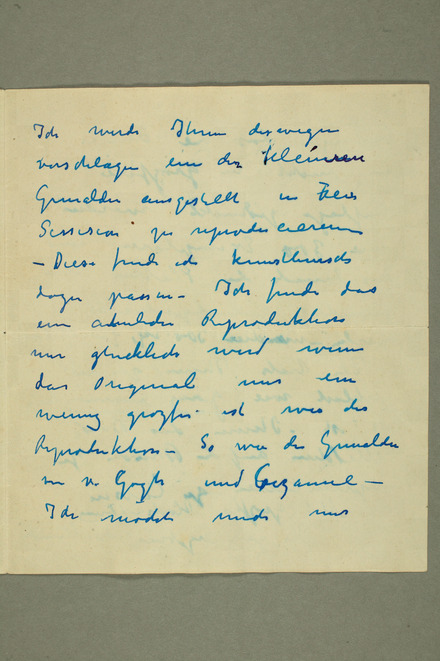 Ich werde Ihnen deswegen
vorschlagen ein der kleineren
Gemälden ausgestellt in Freie
Sezession zu reproduzieren
– Diese finde ich
dazu passen – Ich finde das
ein ähnliche Reproduktion
nur glücklich wird wenn
das Original nur ein
wening größer ist wie die
Reproduktion – So wie die Gemälden
von v. Gogh und Cezanne –
Ich möchte mich nur